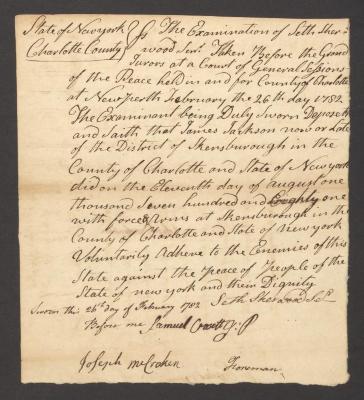 State of New york
Charlotte County
} ss The Examination of Seth Sher=
wood Senr. Taken Before the Grand
Jurors at a Court of General Sessions
of the Peace held in and for County of Charlotte
at New Perth February the 26th day 1782
The Examinant being Duly Sworn Deposeth
and Saith that James Jackson now or Late
of the District of Skensburough in the
County of Charlotte and State of New york
did on the Eleventh day of August one
thousand Seven hundred and Eeighty one
with force & Arms at Skensburough in the
County of Charlotte and State of New york
Voluntarily Adhere to the Enemies of this
State against the Peace of People of the
State of new york and their Dignity
Sworn this 26th day of February 1782 Seth Sherwood Sr
Before me Samuel Crosett J. P
Joseph mcCraken Foreman